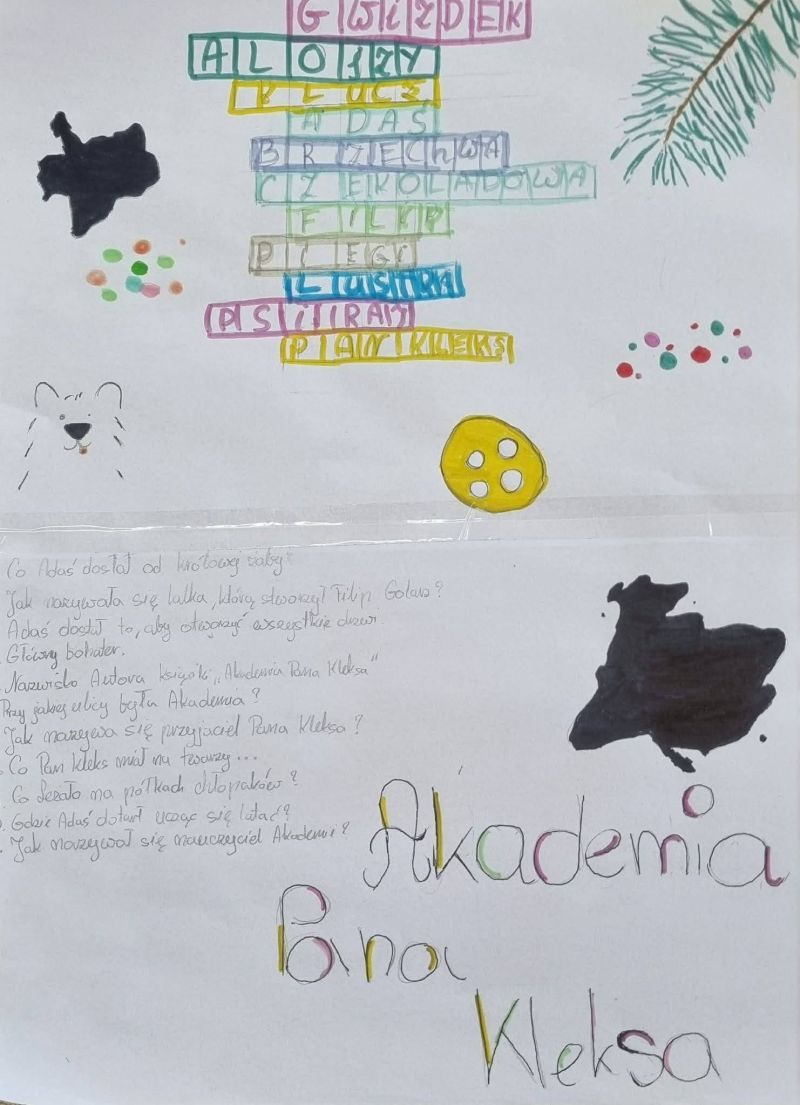 GWIZDEK
ALOJZY
KLUCZ
ADAŚ
BRZECHWA
CZEKOLADOWA
FILIP
PIEGI
LUSTRA
PSI RAJ
PAN KLEKS
Co Adaś dostał od królowej żaby?
Jak nazywała się lalka, którą stworzył Filip Golarz?
Adaś dostał to, aby otworzyć wszystkie drzwi.
Główny bohater.
Nazwisko Autora książki „Akademia Pana Kleksa"
Przy jakiej ulicy była Akademia?
Jak nazywa się przyjaciel Pana Kleksa?
Co Pan Kleks miał na twarzy...
Co leżało na półkach chłopaków?
Gdzie Adaś dotarł ucząc się latać?
Jak nazywał się nauczyciel Akademii?
Akademia
Pana
Kleksa